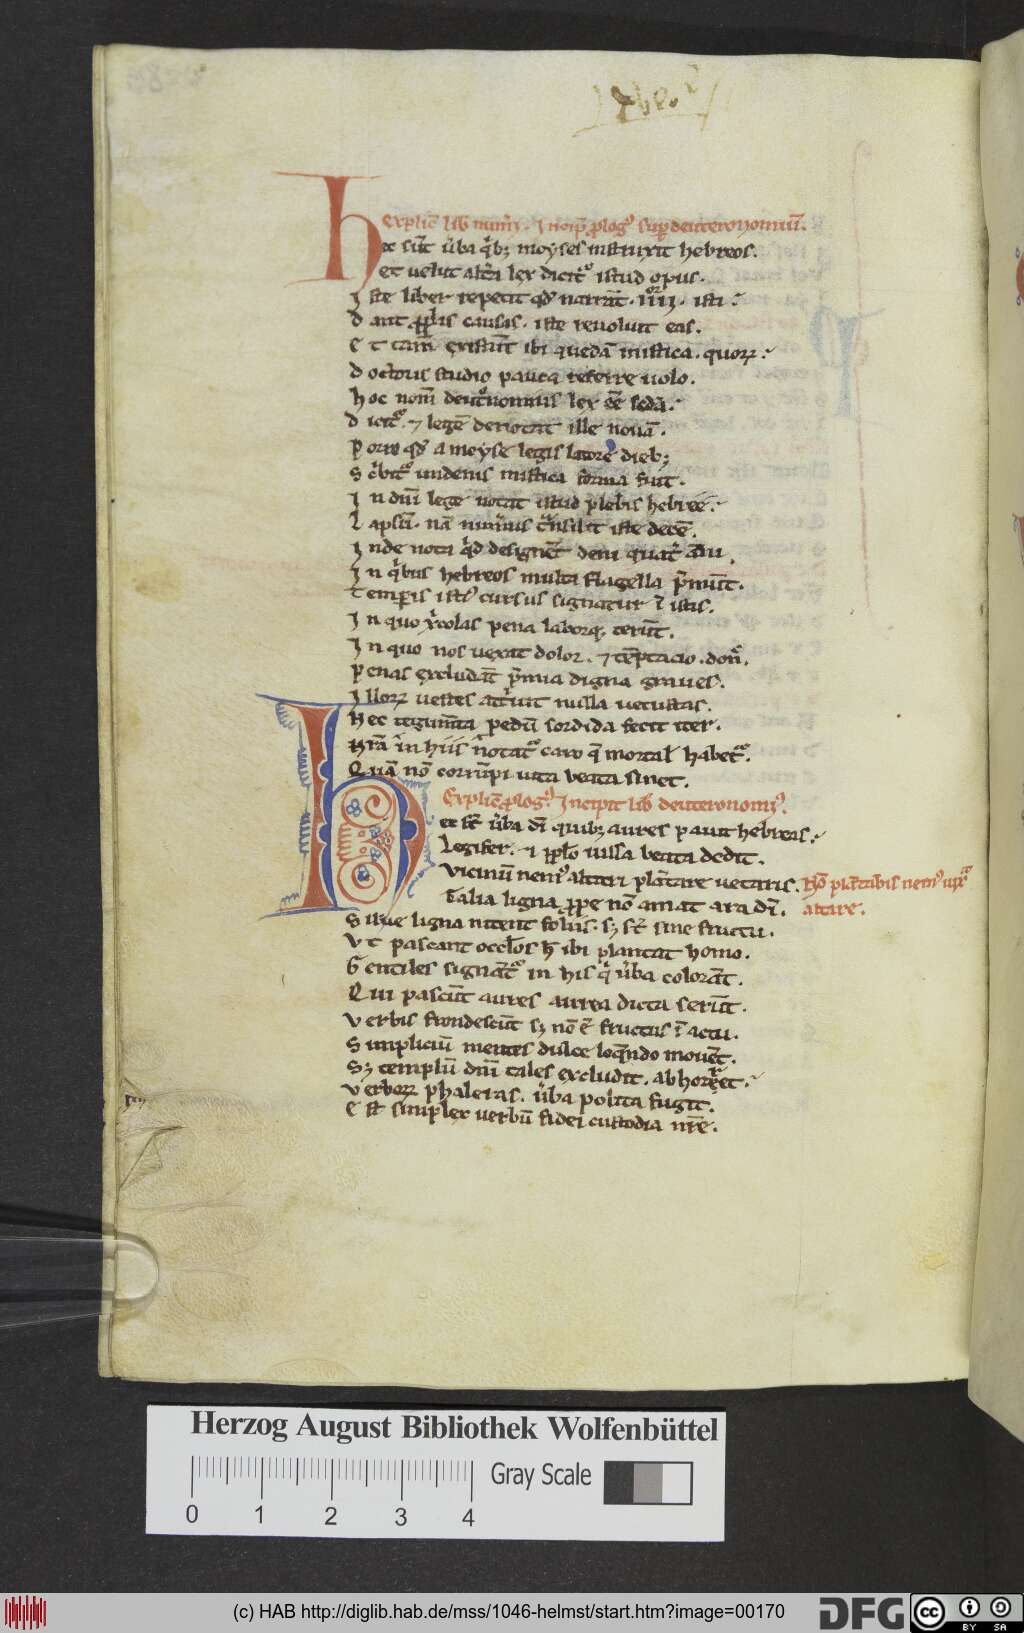 Explic̄ lib̄ num̄i. Incip̄ ꝓlogꝰ suꝑ deuteronomiū.
Hec sūt ūba qͥbꝫ moyses instruxit hebreos.
et uelut alt̄a lex dicit᷑ istud opus.
Iste liber repetit qd̓ narrāt .iiii. isti.
Dant causas. iste reuoluit eas.
Et tam̄ existūt ibi quedā mistica. quoꝝ.
Doctoris studio pauca referre uolo.
hoc nom̄ lex
Dicit᷑. ⁊ legē denotat ille nouā.
Porro qd̓ a moyse legis latore dieb;
undenis mistica forma fuit.
In dn̄i lege notat istud plebis hebree.
Lapsū. nā iste decē.
Inde nota deni
In qͥbus hebreos multa flagella p̄mūt.
Temꝑis istꝰ cursus signatur ī istis.
In quo pena laborqꝫ terūt.
In quo nos uexat dolor. ⁊ tēptacio. donͨ.
Penas excludūt p̄mia digna graues.
Illoꝝ uestes att̓uit nulla uetustas.
Nec tegum̄ta pedū sordida fecit iter.
Nr̄a in hiis notat᷑ caro q̄ mortal̓ habet᷑.
Quā nō corrūpi uita beata sinet.
Explic̄ ꝓlogꝰ. Incipit lib̄ deuteronomiꝰ.
Hec st̄ ūba dī quibꝫ aures pauit hebreas.
Legifer. ⁊ ppl̄o iussa beata dedit.
Vicinū nemꝰ altari plātare uetaris. Nō plātabis nemꝰ iux̄
Talia ligna ꝓpe nō amat ara dī. altare.
Silue ligna nitent foliis. sꝫ st̄ sine fructu.
Vt pascant oc̄los h̄ ibi plantat homo.
Gentiles signāt᷑ in his qͥ ūba colorāt.
Qui pascūt aures aurea dicta serūt.
Verbis frondescūt sꝫ nō ē fructus ī actu.
Simpliciū mentes dulce loq̄ndo mouēt.
Sꝫ templū dn̄i tales excludit. abhorret.
Verboꝝ phaleras. ūba polita fugit.
Est simplex uerbū fidei custodia nr̄e.
Herzog August Bibliothek Wolfenbüttel
Gray Scale
0 1 2 3 4
(c) HAB http://diglib.hab.de/mss/1046-helmst/start.htm?image=00170
DFG
cc
BY SA